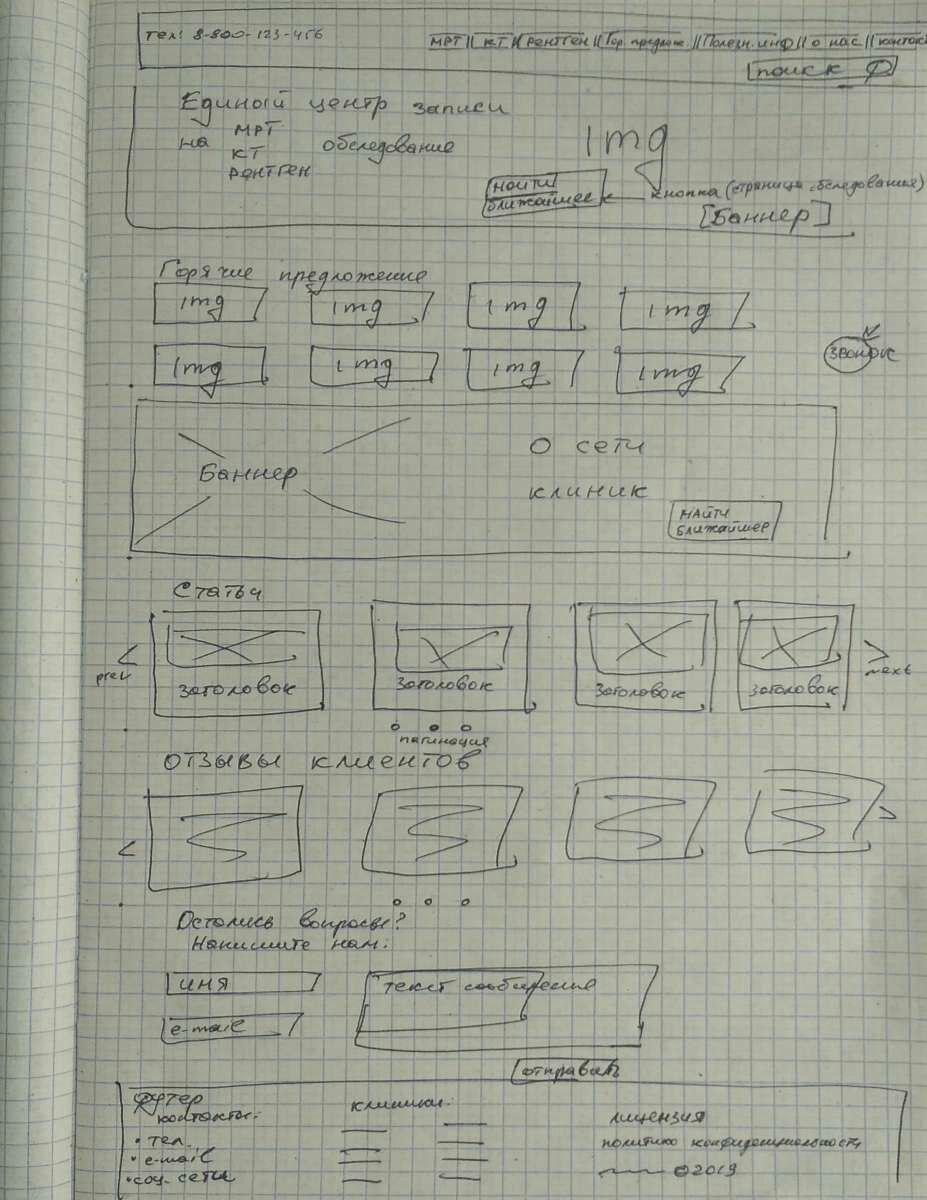 тел: 8-800-123-456
МРТ || КТ || Рентген || Гор. предлож. || Полезн. инф || о нас || контак
поиск
Единый центр записи
на МРТ
КТ обследование
рентген
img
найти
ближайшее
кнопка (страница обследования)
[Баннер]
Горячие предложение
img img img img
img img img img
звонок
Баннер
О сети
клиник
найти
ближайшее
Статьи
< prev
заголовок заголовок заголовок заголовок
> next
пагинация
ОТЗЫВЫ КЛИЕНТОВ
< >
Остались вопросы?
Напишите нам:
имя
текст сообщения
e-mail
отправить
Футер
контакты: клиники: лицензия
• тел. политика конфиденциальности
• e-mail ©2019
• соц. сети